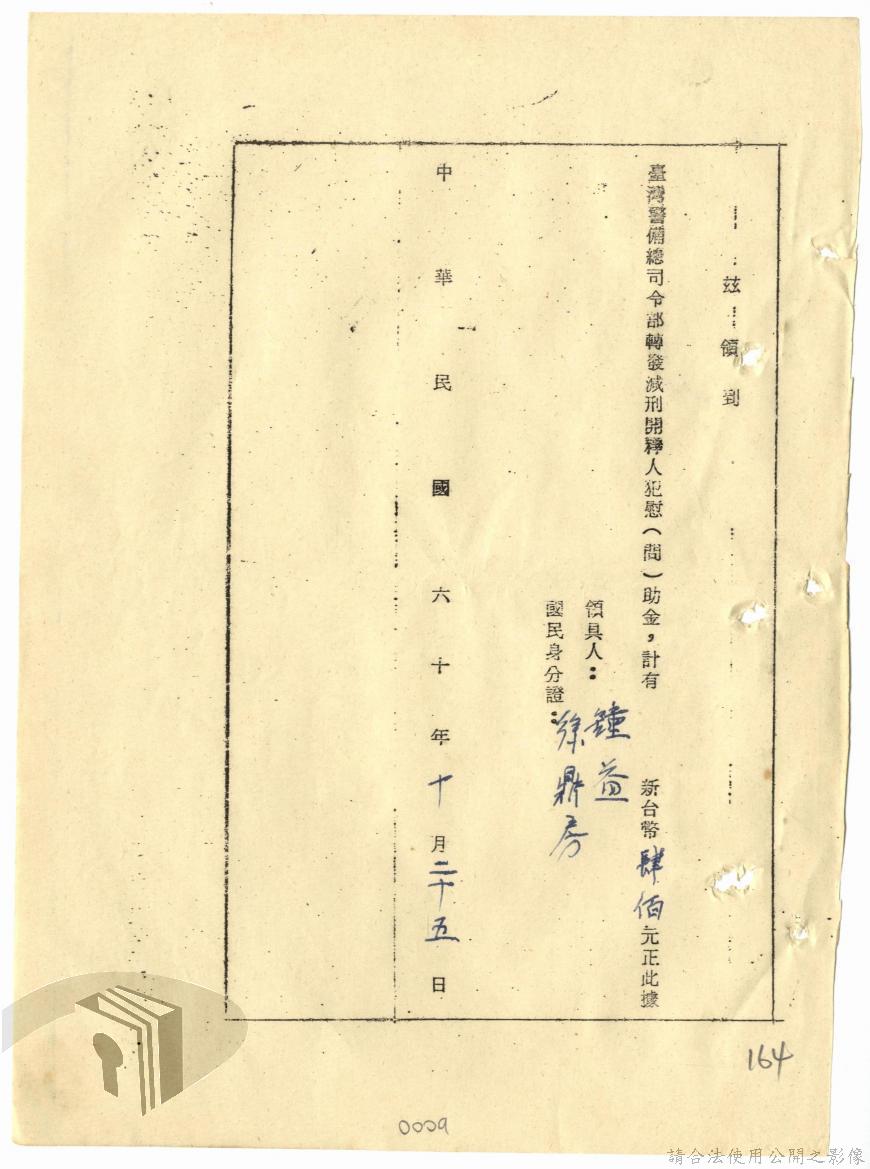 茲領到
臺灣警備總司令部轉發減刑開釋人犯慰(問)助金,計有 新台幣肆佰元正此據
領具人：鐘益
國民身分證：徐鼎房
中華民國六十年十月二十五日
164
0009
請合法使用公開之影像